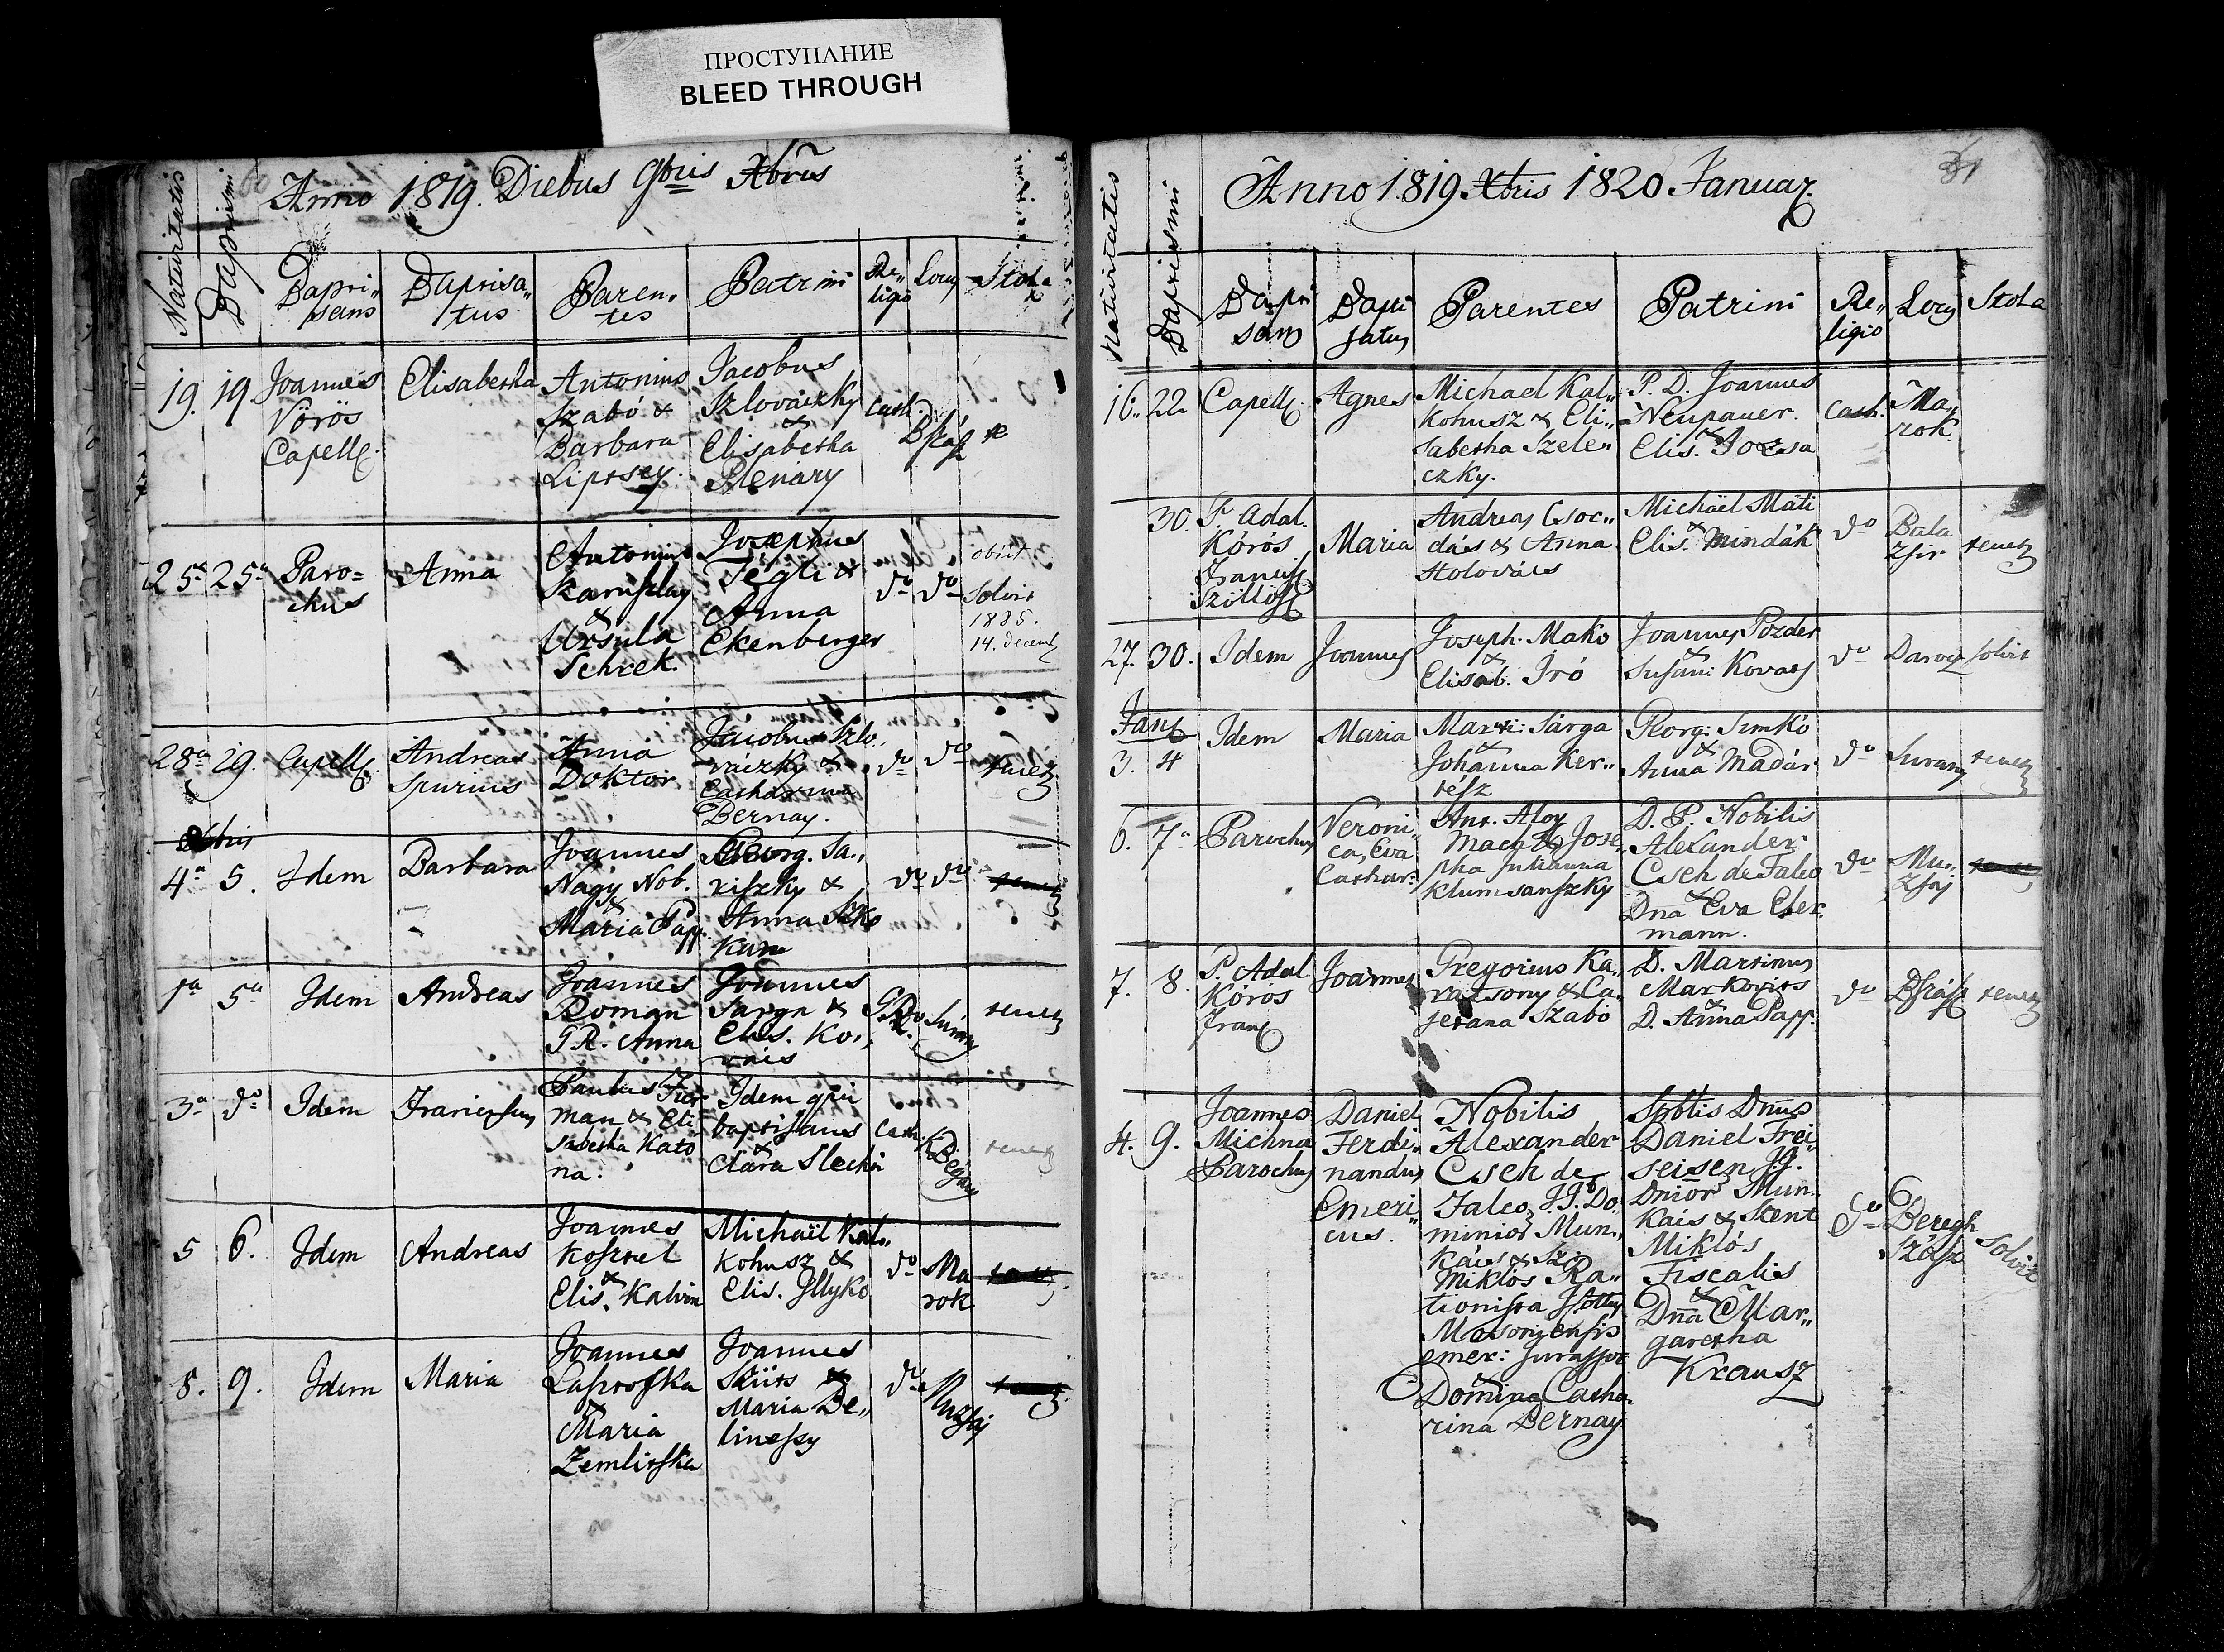 ПРОСТУПАНИЕ
BLEED THROUGH
60
Anno 1819. Diebus 9bris Xbris
Nativitatis
Baptismi
Bapti„
sans
Baptisa„
tus
Paren„
tes
Patrini
Re„
ligio
Locus
Stola
19. 19
Joannes
Vörös
Capell.
Elisabetha
Antonius
Szabó &
Barbara
Liptsey.
Jacobus
Szlováczky
&
Elisabetha
Plenáry
Cath.
BSzász
25a 25a
Paro=
chus
Anna
Antonius
&
Ursula
Schrek.
Josephus
Tégli &
Anna
Ekenberger
do do
obiit
solvit
1835.
14. decemb
28a 29.
Capell.
Andreas
spurius
Anna
Doktor
Jacobus Szlo„
váczky &
Catharina
Bernay.
do do
tenetz
Xbris
4a 5.
Idem
Barbara
Joannes
Nagy Nob.
&
Maria Papp
Georg. Sa„
riszky &
Anna Szko
kum
do do
1a 5a
Idem
Andreas
Joannes
Roman
GR. Anna
Joannes
Sarga &
Elis. Ko„
vács
GR.
Surany
tenetz
3a do
Idem
Franciscus
Paulus Fur
man & Eli
sabetha Kato
na.
Idem qui
baptisans
&
Clára Slechta
Cath
KBégány
tenetz
5 6.
Idem
Andreas
Joannes
Kosztel
&
Elis. Kalvin
Michaël Kal„
kohusz &
Elis. Illyko
do
Ma
rok
8. 9.
Idem
Maria
Joannes
Laprofska
&
Maria
Zemlitska
Joannes
Skiits &
Maria Be„
linessy
do
Muzsaj
31
Anno 1819 Xbris 1820. Januar.
Nativitatis
Baptismi
Bapti
sans
Bapti
satus
Parentes
Patrini
Re„
ligio
Locus
Stola
16. 22
Capell.
Agnes
Michael Kal„
kohusz & Eli„
sabetha Szele„
czky.
P. D. Joannes
Neupauer.
&
Elis. Jozsa
Cath.
Ma„
rok.
30.
P. Adal.
Körös
Francisc
Szöllös
Maria
Andreas Csoc„
dás & Anna
Stolovács
Michaël Máti
&
Elis. Mindák
do
Bala
Zsir
tenetz
27. 30.
Idem
Joannes
Joseph. Mako
&
Elisab. Iró
Joannes Pozder
&
Susani Kovacs
do
Darocz
solvit
Jan
3. 4
Idem
Maria
Marti: Sárga
&
Johanna Ker„
tész
Georg: Simkó
&
Anna Madár
do
Surany
tenetz
6. 7a
Parochus
Veroni„
ca, Eva
Cathar:
Ant. Aloy
Macht & Jose„
pha Julianna
Klumsanszky
D. P. Nobilis
Alexander
Cseh de Falco
&
Dna Eva Eber„
mann.
do
Mu„
zsaj
7. 8.
P. Adal
Körös
Franc
Joannes
Gregorius Ka„
ratsony & Ca„
jetana Szabo
D. Martinus
Markovits
&
D. Anna Papp.
do
BSzász
tenetz
4. 9.
Joannes
Michna
Parochus
Daniel
Ferdi„
nandus
Emeri„
cus.
Nobilis
Alexander
Cseh de
Falco, I.I. Do„
minior Mun„
kács & Szt
Miklós Ra„
tionista
Mosoniensis
emer: Jurassor
&
Domina Catha„
rina Bernay
Sptlis Dnus
Daniel Frei„
seisen I.I.
Dnior Mun„
kács & Szent
Miklós
Fiscalis
&
Dna Mar„
garetha
Krausz
do
Beregh
Szász
Solvit